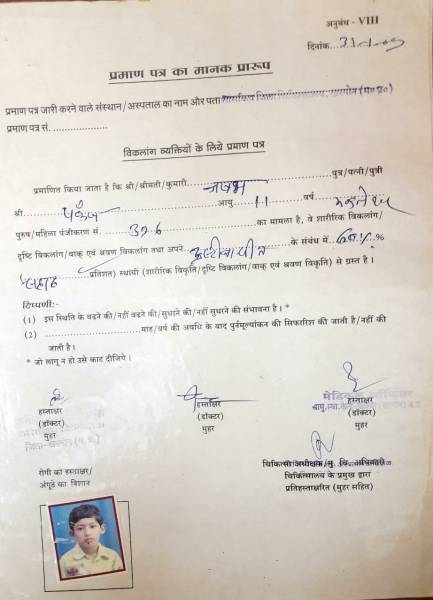 अनुबंध - VIII
दिनांक...
प्रमाण पत्र का मानक प्रारूप
प्रमाण पत्र जारी करने वाले संस्थान/अस्पताल का नाम और पता (म०प्र०)
प्रमाण पत्र सं. ....................
विकलांग व्यक्तियों के लिये प्रमाण पत्र
प्रमाणित किया जाता है कि श्री/श्रीमती/कुमारी पुत्र/पत्नी/पुत्री
श्री पंकज आयु 11 वर्ष
पुरुष/महिला पंजीकरण सं. 326 का मामला है, वे शारीरिक विकलांग/
दृष्टि विकलांग/वाक् एवं श्रवण विकलांग तथा अपने के संबंध में %
प्रतिशत) स्थायी (शारीरिक विकृति/दृष्टि विकलांग/वाक् एवं श्रवण विकृति) से ग्रस्त है।
टिप्पणी:-
(1) इस स्थिति के बढने की/नहीं बढने की/सुधरने की/नहीं सुधरने की संभावना है। *
(2) माह/वर्ष की अवधि के बाद पुर्नमूल्यांकन की सिफारिश की जाती है/नहीं की
जाती है।
* जो लागू न हो उसे काट दीजिये।
हस्ताक्षर हस्ताक्षर हस्ताक्षर
(डॉक्टर) (डॉक्टर) (डॉक्टर)
मुहर मुहर मुहर
रोगी का हस्ताक्षर/
अंगूठे का निशान
चिकित्सा अधीक्षक/मु. चि. अधिकारी
चिकित्सालय के प्रमुख द्वारा
प्रतिहस्ताक्षरित (मुहर सहित)